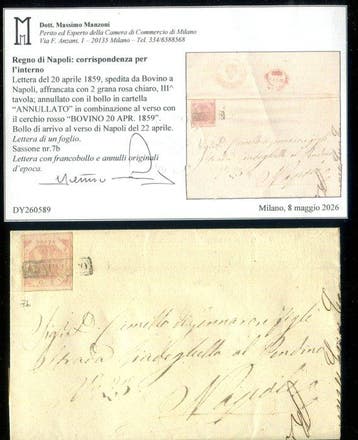 Dott. Massimo Manzoni
Perito ed Esperto della Camera di Commercio di Milano
Via F. Anzani, 1 – 20135 Milano - Tel. 334/6588568
Regno di Napoli: corrispondenza per
l'interno
Lettera del 20 aprile 1859, spedita da Bovino a
Napoli, affrancata con 2 grana rosa chiaro, III^
tavola; annullato con il bollo in cartella
"ANNULLATO" in combinazione al verso con
il cerchio rosso "BOVINO 20 APR. 1859".
Bollo di arrivo al verso di Napoli del 22 aprile.
Lettera di un foglio.
Sassone nr.7b
Lettera con francobollo e annulli originali
d'epoca.
DY260589
Milano, 8 maggio 2026
7b
Strada
al Pendino
Napoli